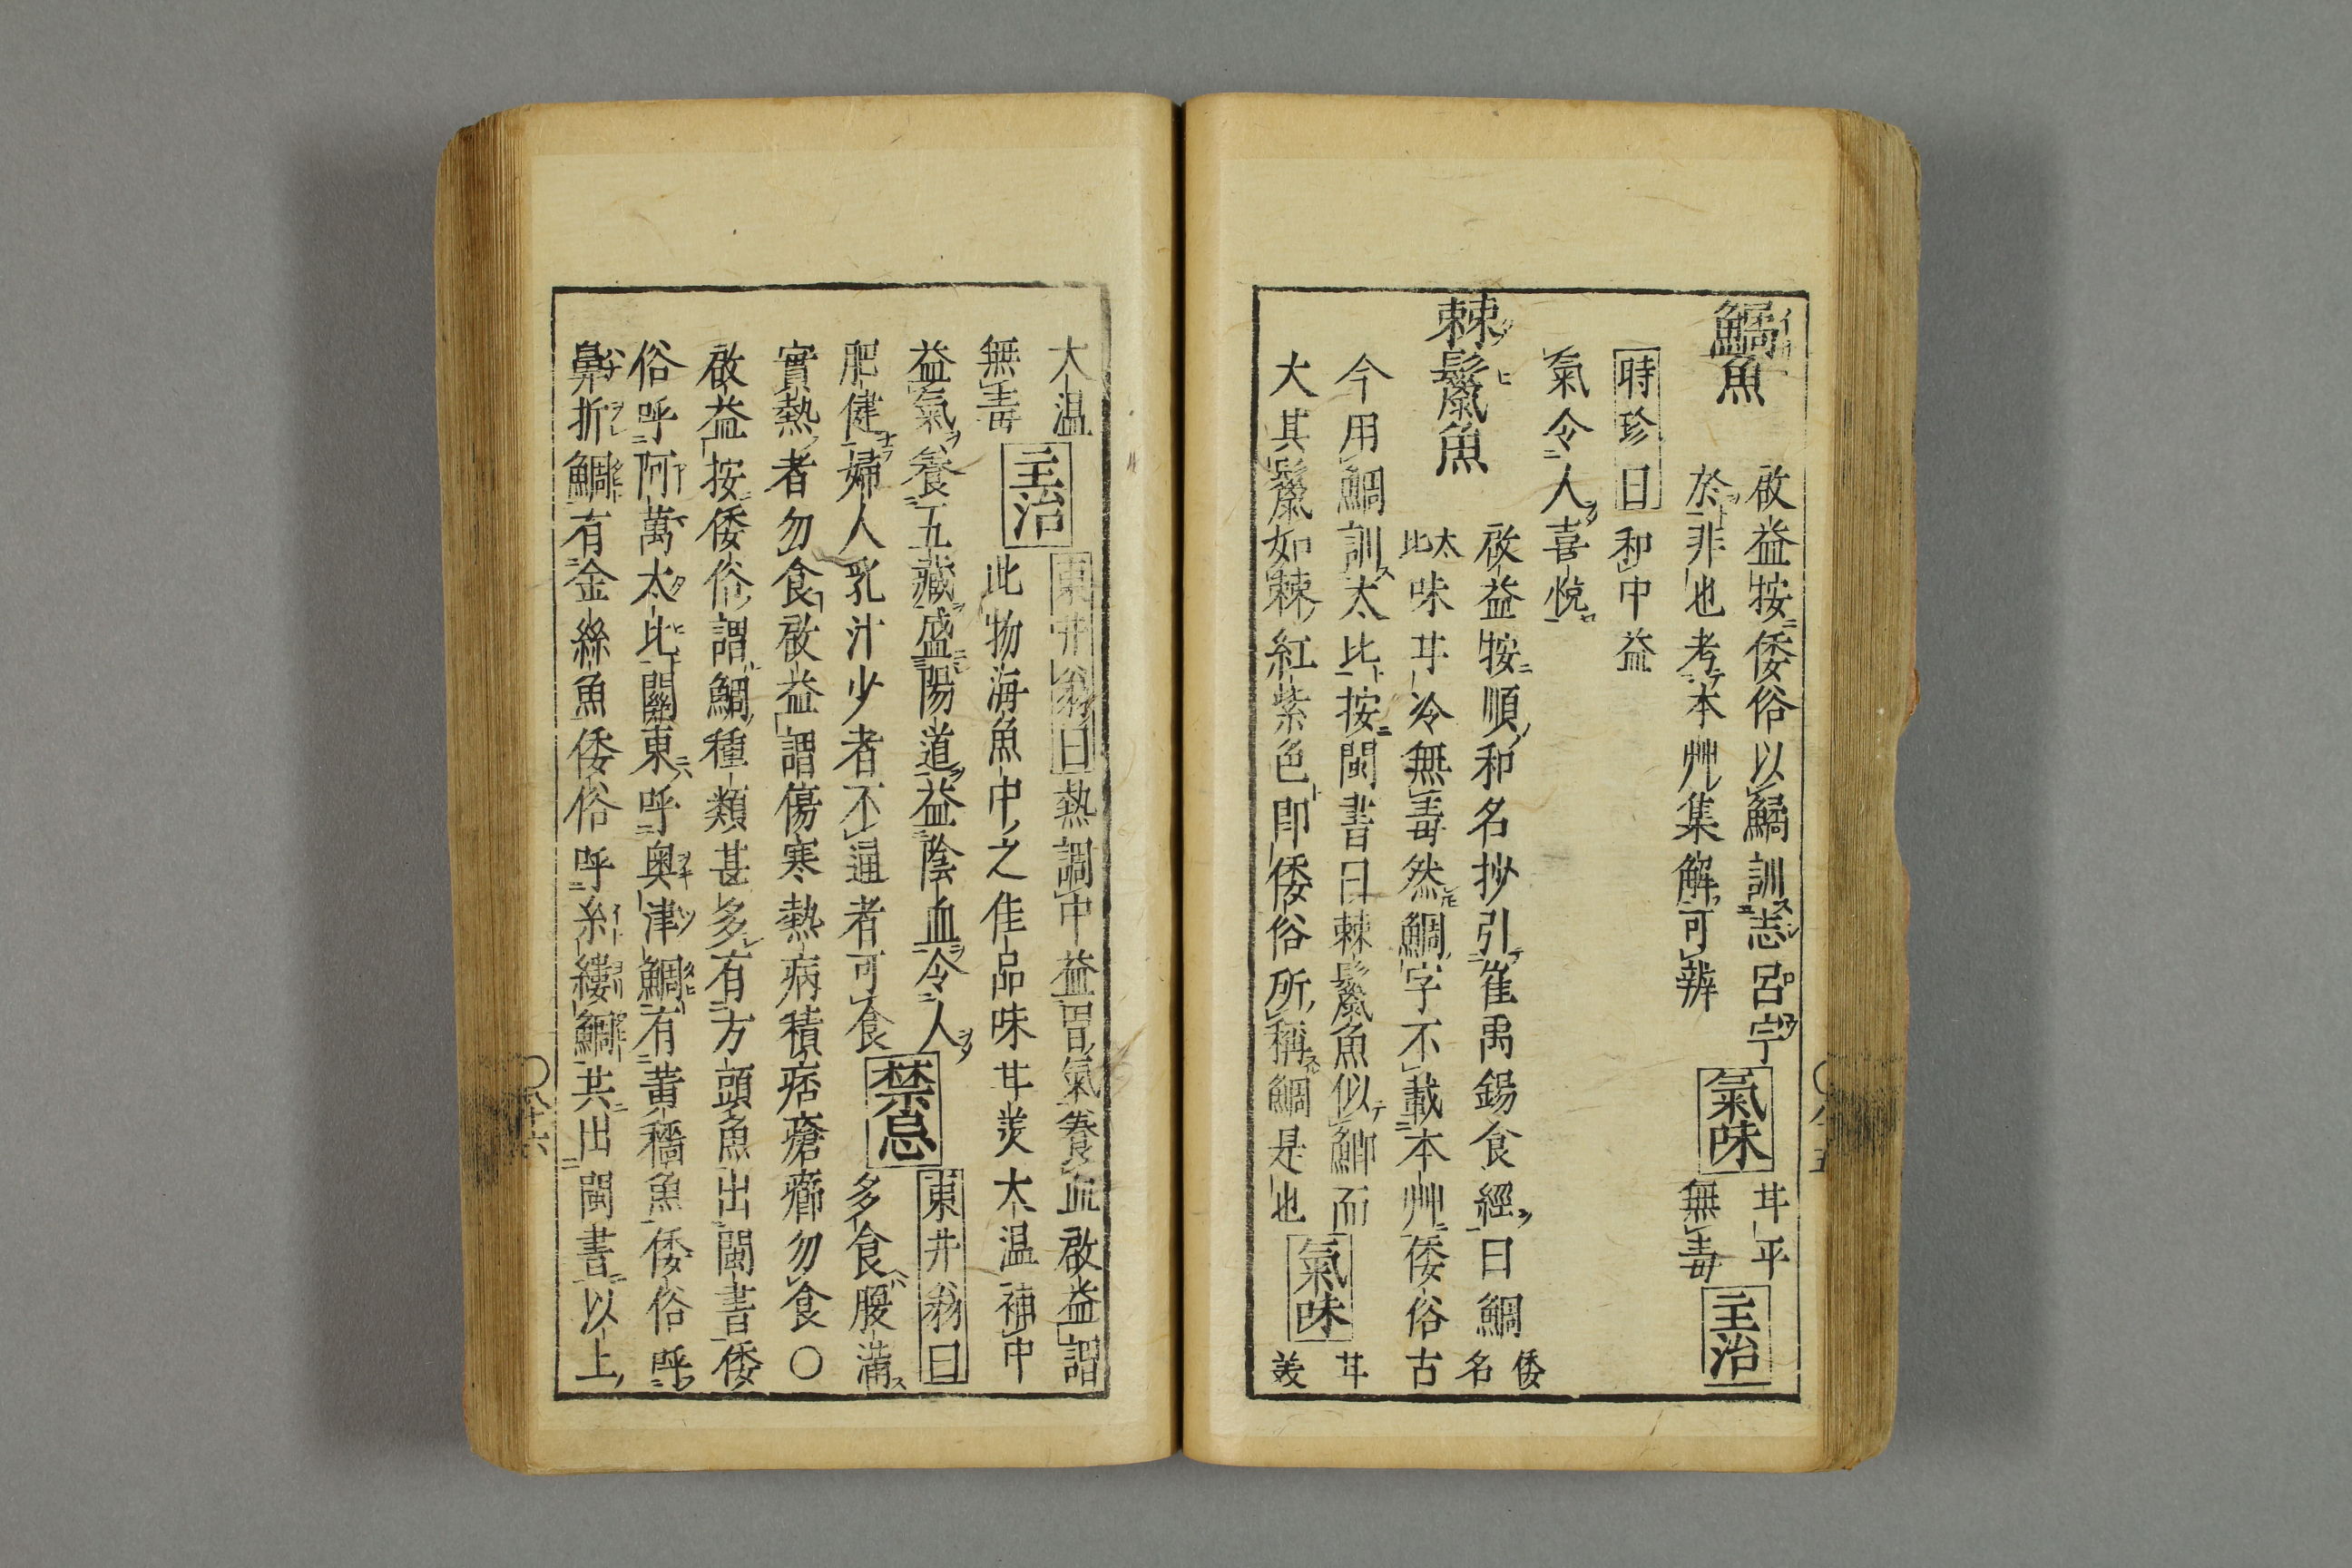 鱊魚
啟益按倭俗以鱊訓志呂宇
於非也考本艸集解可辨
氣味
甘平
無毒
主治
時珍曰和中益
氣令人喜悅
棘鬣魚
啟益按順和名抄引崔禹錫食經曰鯛倭名
太比味甘冷無毒然鯛字不載本艸倭俗古
今用鯛訓太比按閩書曰棘鬣魚似鯽而
大其鬣如棘紅紫色即倭俗所稱鯛是也
氣味
甘
美
大温
無毒
主治
東井翁曰熱調中益胃氣養血啟益謂
此物海魚中之佳品味甘美大温補中
益氣養五藏盛陽道益陰血令人
肥健婦人乳汁少者不通者可食
禁忌
東井翁曰
多食腹滿
實熱者勿食啟益謂傷寒熱病積痞瘡癤勿食〇
啟益按倭俗謂鯛種類甚多有方頭魚出閩書倭
俗呼阿萬太比關東呼奧津鯛有黄穡魚倭俗呼
鼻折鯛有金絲魚倭俗呼糸縷鯛共出閩書以上
〇八十五
〇八十六